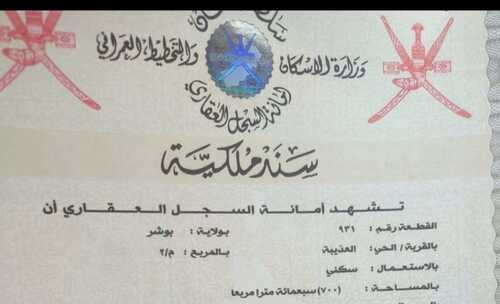 سلطنة عمان
وزارة الإسكان والتخطيط العمراني
أمانة السجل العقاري
سند ملكية
تشهد أمانة السجل العقاري أن
القطعة رقم : ٩٣١ بولاية : بوشر
بالقرية / الحي : العذيبة بالمربع : م/٢
بالاستعمال : سكني
بالمساحة : (٧٠٠) سبعمائة مترا مربعا